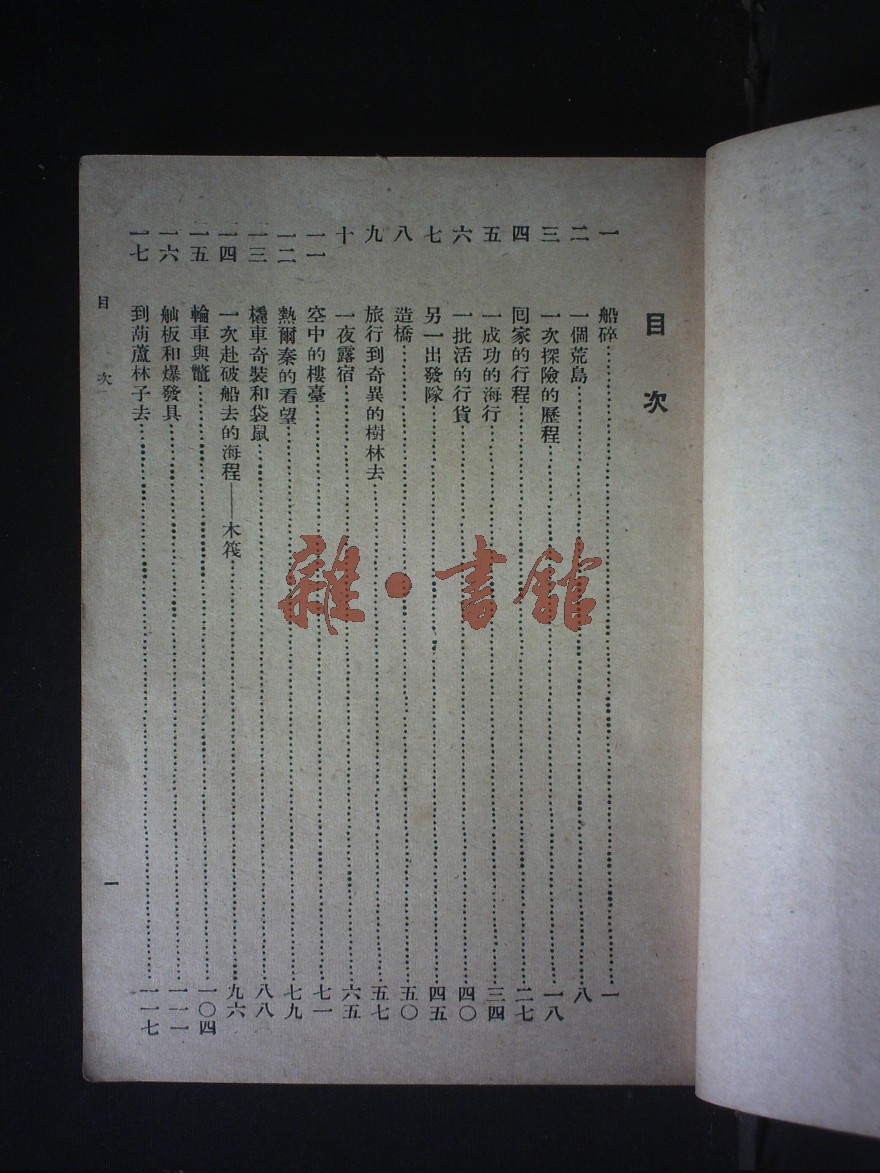 目次
一 船碎 一
二 一個荒島 八
三 一次探險的歷程 一八
四 囘家的行程 二七
五 一成功的海行 三四
六 一批活的行貨 四〇
七 另一出發隊 四五
八 造橋 五〇
九 旅行到奇異的樹林去 五七
十 一夜露宿 六五
一一 空中的樓臺 七一
一二 熱爾秦的看望 七九
一三 橇車奇裝和袋鼠 八八
一四 一次赴破船去的海程——木筏 九六
一五 輪車與鼈 一〇四
一六 舢板和爆發具 一一一
一七 到葫蘆林子去 一一七
目次
一
雜·書館